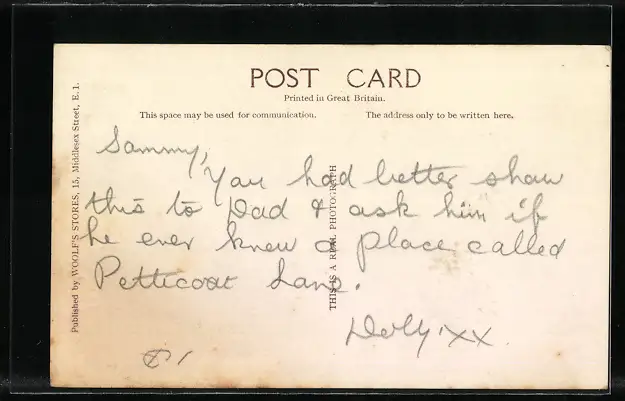 POST CARD
Printed in Great Britain.
This space may be used for communication.
The address only to be written here.
Sammy,
You had better show
this to Dad & ask him if
he ever knew a place called
Petticoat Lane.
Dolly. XX.
Published by WOOLF'S STORES, 15, Middlesex Street, E. 1.
THIS IS A REAL PHOTOGRAPH